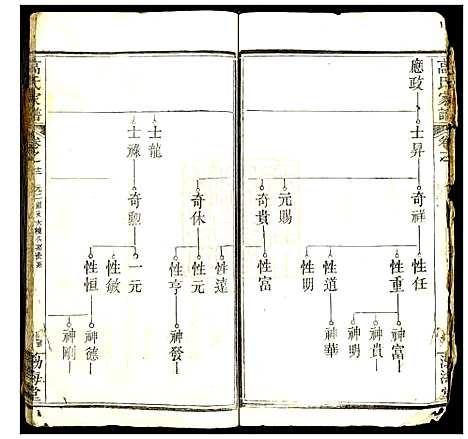 高氏家譜
卷之
應政
士昇
士龍
士祿
奇祥
元賜
奇貴
奇休
奇勳
性任
性重
性道
性明
性富
性遠
性元
性亨
一元
性敏
性恒
神富
神貴
神明
神華
神發
神德
神剛
渤海堂
高氏家譜
卷之三
渤海堂